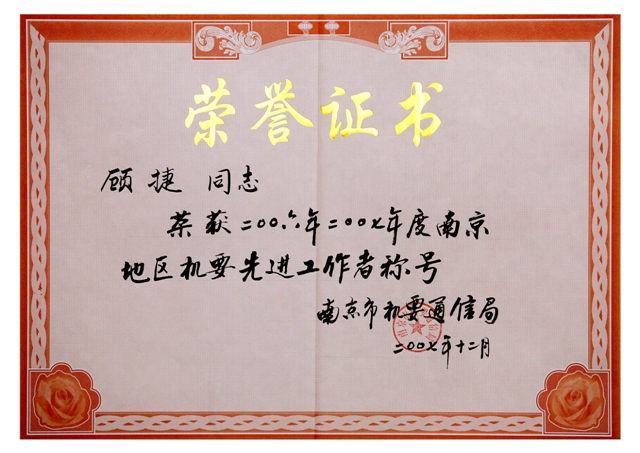 荣誉证书
顾捷 同志
荣获二〇〇六年二〇〇七年度南京
地区机要先进工作者称号
南京市机要通信局
二〇〇七年十二月